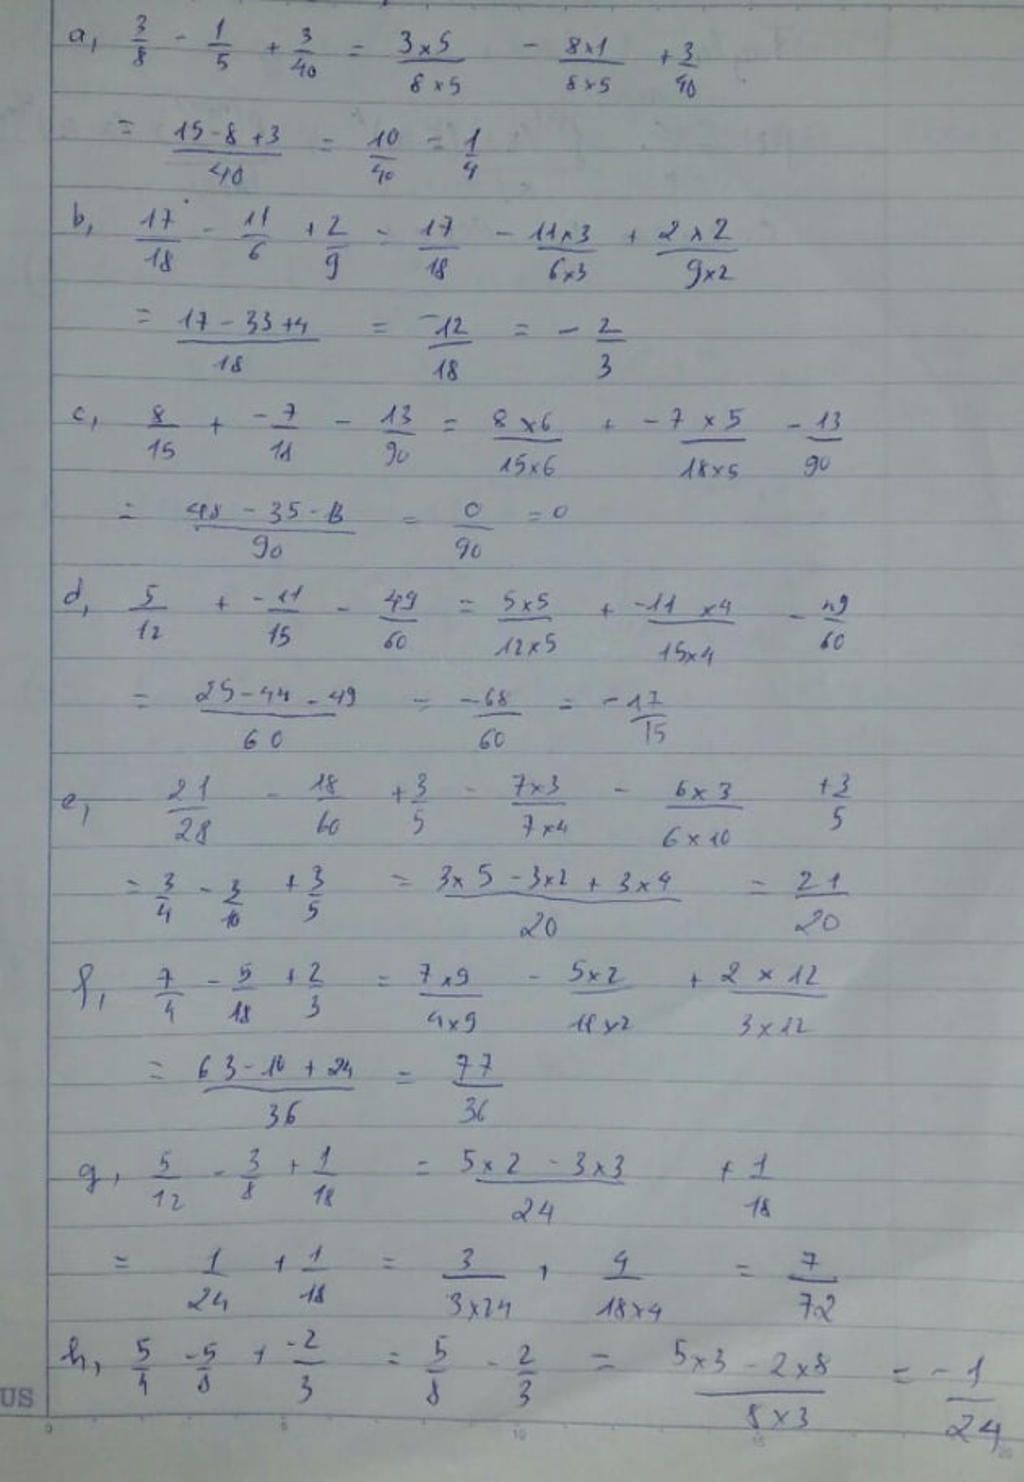 a, 3/8 - 1/5 + 3/40 = 3×5/8×5 - 8×1/8×5 + 3/40
= 15-8+3/40 = 10/40 = 1/4
b, 17/18 - 11/6 + 2/9 = 17/18 - 11×3/6×3 + 2×2/9×2
= 17-33+4/18 = -12/18 = -2/3
c, 8/15 + -7/18 - 13/90 = 8×6/15×6 + -7×5/18×5 - 13/90
= 48-35-13/90 = 0/90 = 0
d, 5/12 + -11/15 - 49/60 = 5×5/12×5 + -11×4/15×4 - 49/60
= 25-44-49/60 = -68/60 = -17/15
e, 21/28 - 18/60 + 3/5 = 7×3/7×4 - 6×3/6×10 + 3/5
= 3/4 - 3/10 + 3/5 = 3×5-3×2+3×4/20 = 21/20
f, 7/4 - 5/18 + 2/3 = 7×9/4×9 - 5×2/18×2 + 2×12/3×12
= 63-10+24/36 = 77/36
g, 5/12 - 3/8 + 1/18 = 5×2-3×3/24 + 1/18
= 1/24 + 1/18 = 3/3×24 + 4/18×4 = 7/72
h, 5/4 - 5/8 + -2/3 = 5/8 - 2/3 = 5×3-2×8/8×3 = -1/24
US
0 5 10 15 20